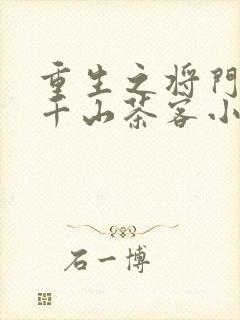 重生之将门
千山茶客小
石一博